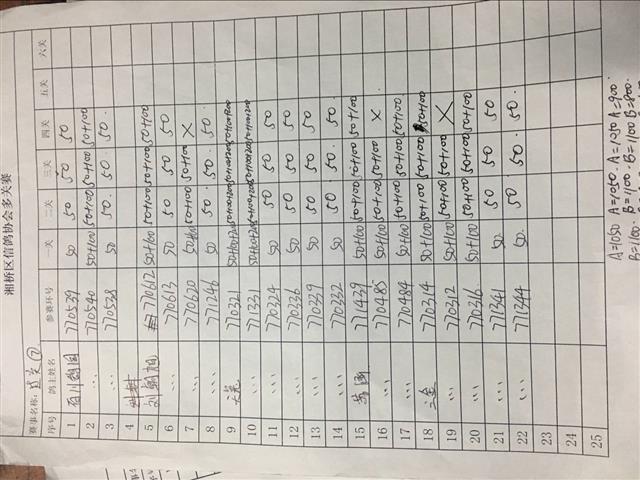 湘桥区信鸽协会多关赛
赛事名称：
序号 鸽主姓名 参赛环号 一关 二关 三关 四关 五关 六关
1 770539 50 50 50 50
2 … 770540 50+100 50+100 50+100 50+100
3 … 770538 50 50 50 50
4
5 770612 50+100 50+100 50+100 50+100
6 … 770613 50 50 50 50
7 … 770620 50+100 50+100 50+100 X
8 … 771246 50 50 50 50
9 770321 50+100+200 50+100+200 50+100+200 50+100+200
10 … 771331 50+100+200 50+100+200 50+100+200 50+100+200
11 … 770324 50 50 50 50
12 … 770336 50 50 50 50
13 … 770339 50 50 50 50
14 … 770332 50 50 50 50
15 771439 50+100 50+100 50+100 50+100
16 … 770485 50+100 50+100 50+100 X
17 … 770484 50+100 50+100 50+100 50+100
18 770314 50+100 50+100 50+100 50+100
19 … 770312 50+100 50+100 50+100 X
20 … 770316 50+100 50+100 50+100 50+100
21 … 771341 50 50 50 50
22 … 771344 50 50 50 50
23
24
25
A=1050 A=1050 A=1050 A=900
B=1100 B=1100 B=1100 B=800